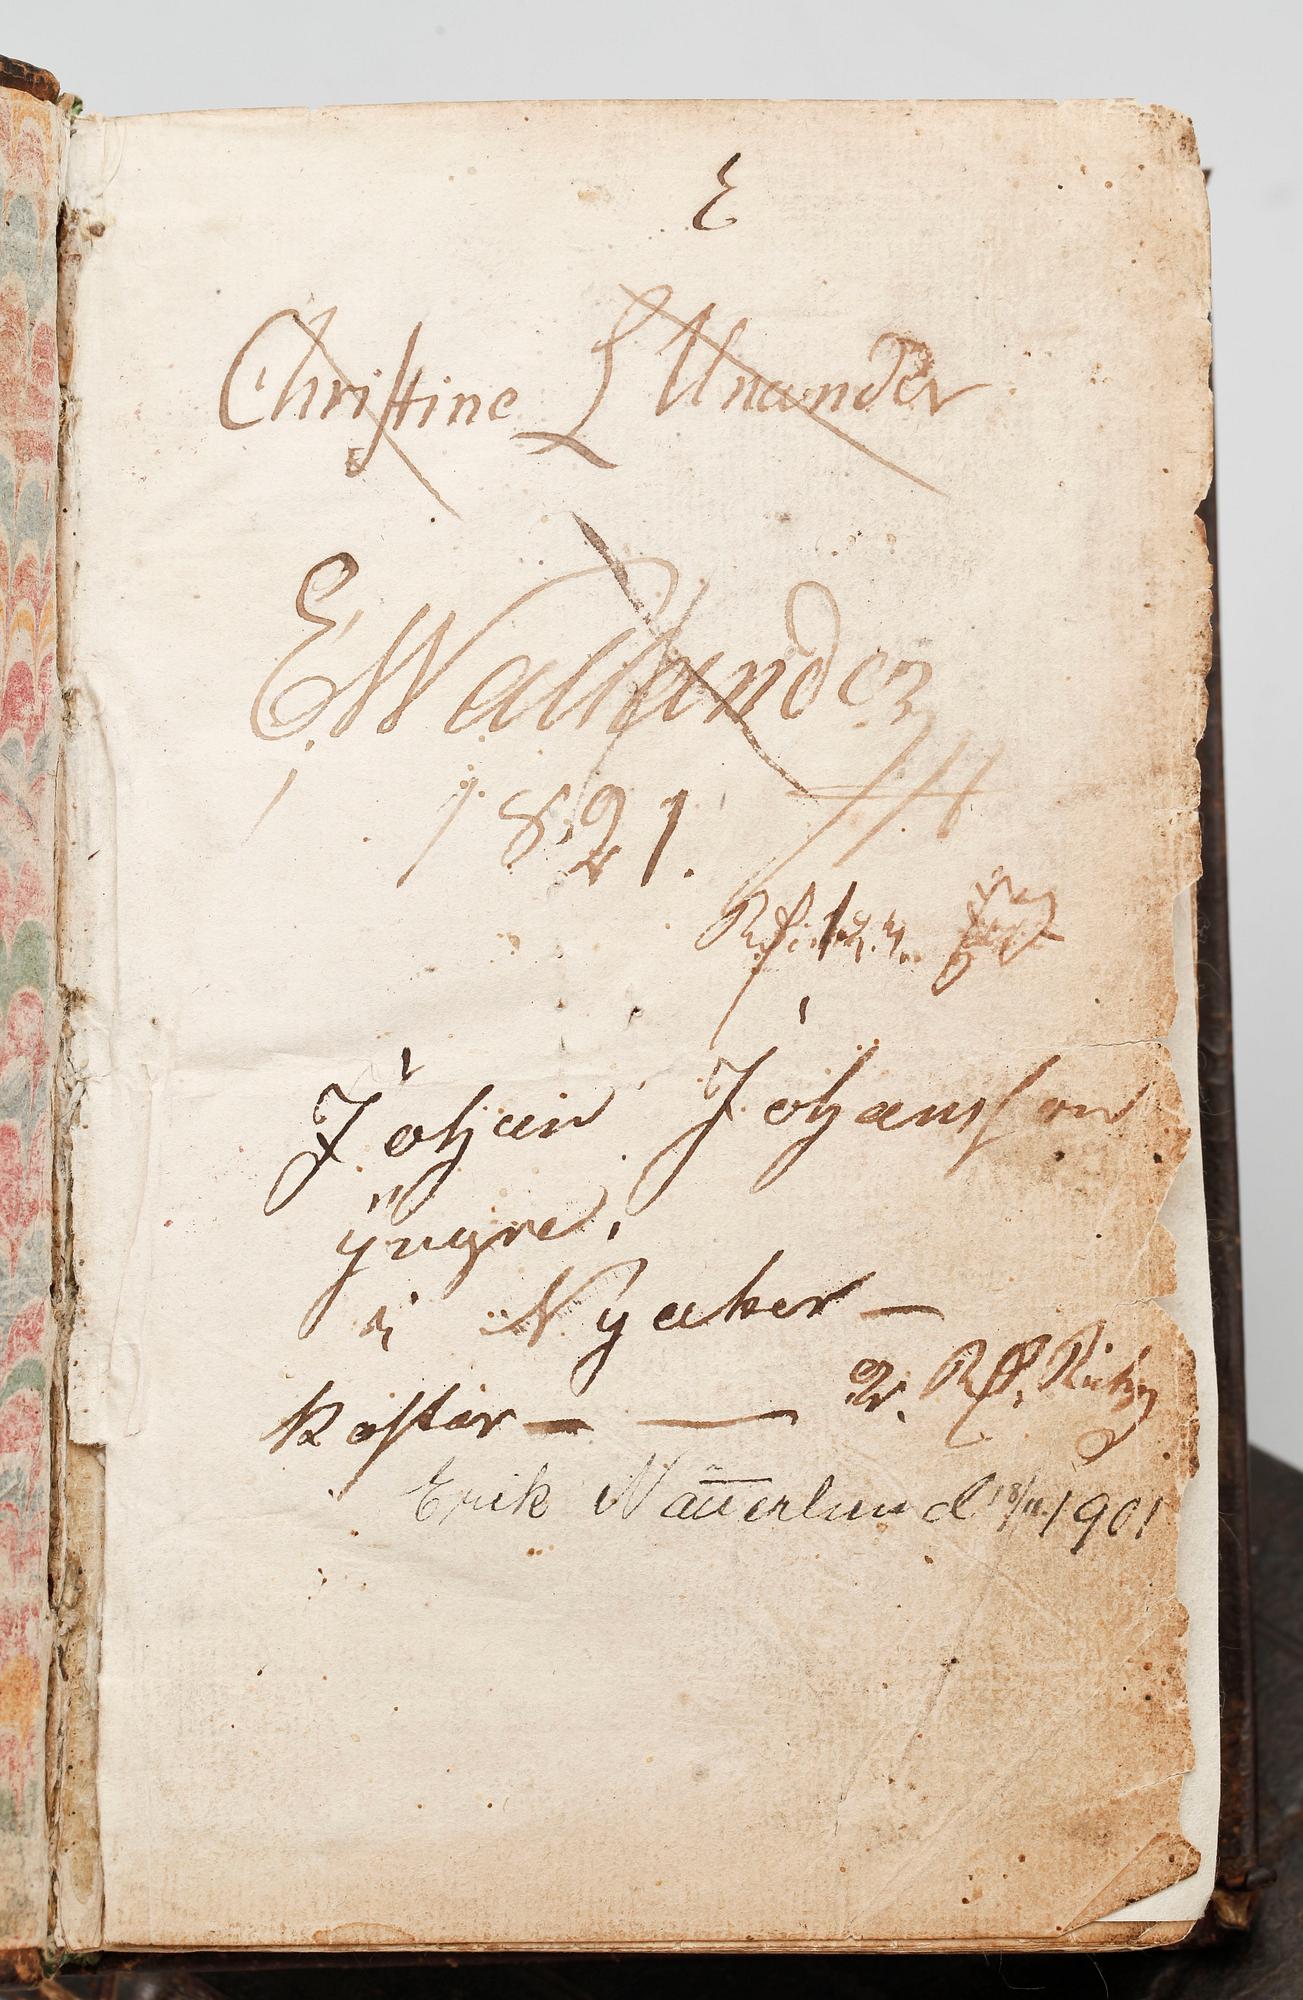 E
Christine L Unander
E Wallander
1821.
Johan Johansson
yngre.
i Nyaker —
kostar — — 2. R
Erik Nauerlund 18/11. 1901